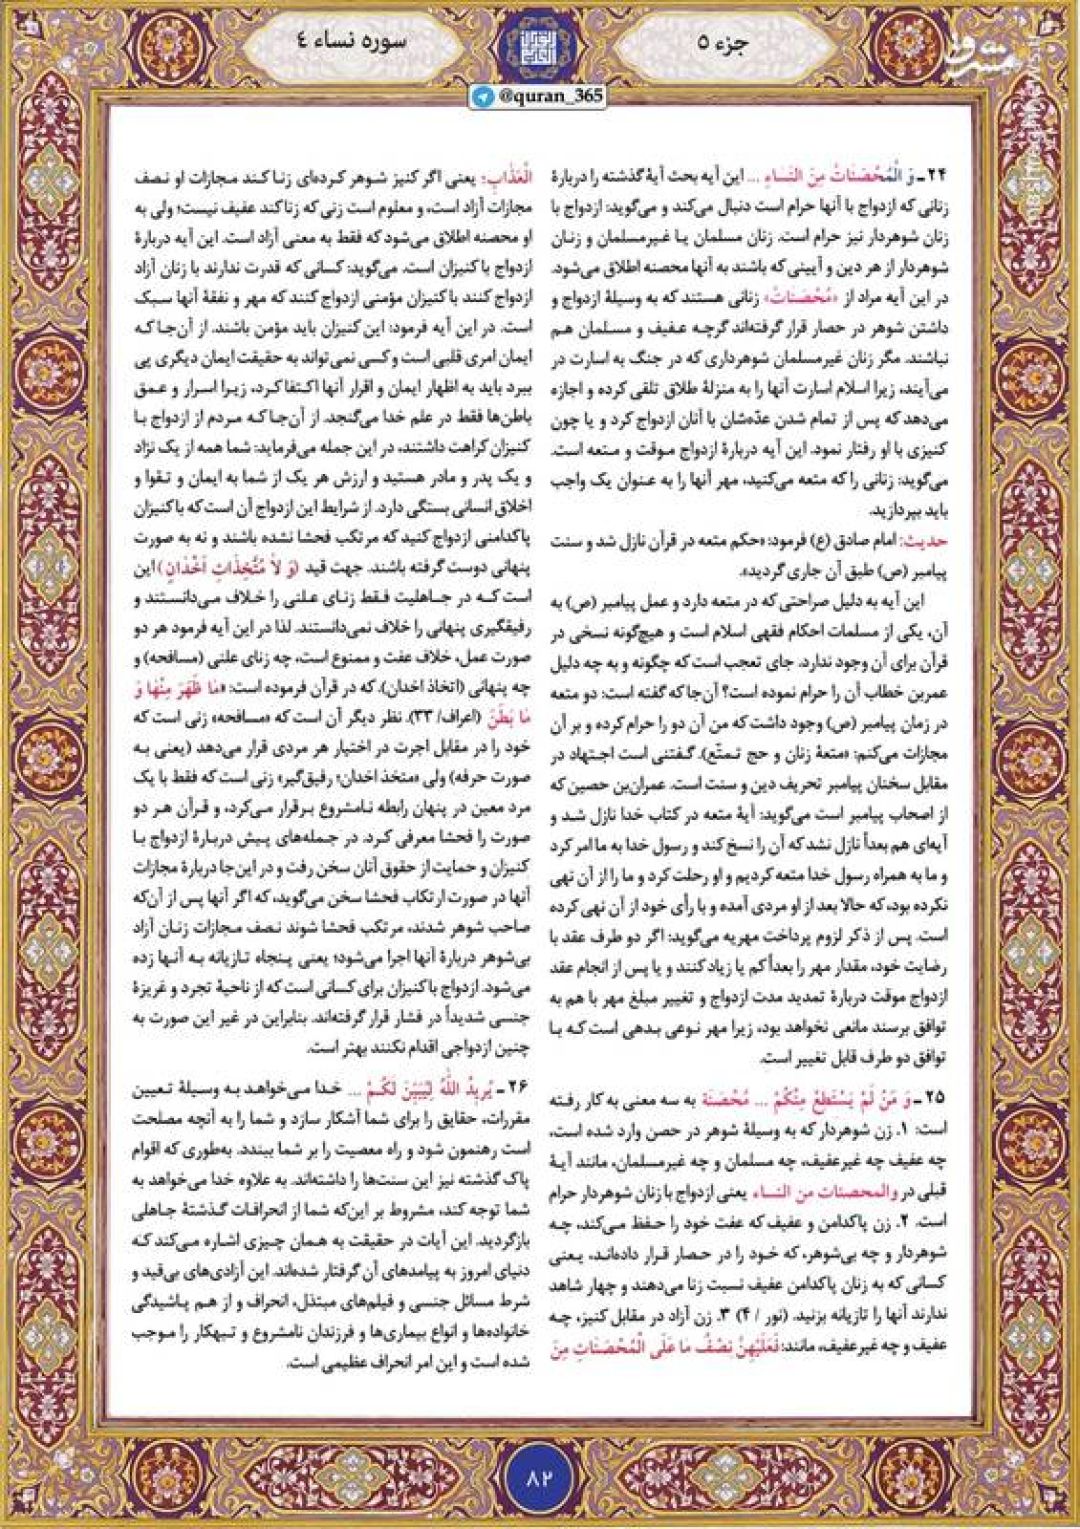 سوره نساء ۴
جزء ۵
@quran_365
مشرق
۲۴ـ وَ الْمُحْصَنَاتُ مِنَ النِّسَاءِ ... این آیه بحث آیهٔ گذشته را دربارهٔ
زنانی که ازدواج با آنها حرام است دنبال می‌کند و می‌گوید: ازدواج با
زنان شوهردار نیز حرام است. زنان مسلمان یا غیرمسلمان و زنان
شوهردار از هر دین و آیینی که باشند به آنها محصنه اطلاق می‌شود.
در این آیه مراد از «مُحْصَنَات» زنانی هستند که به وسیلهٔ ازدواج و
داشتن شوهر در حصار قرار گرفته‌اند گرچه عفیف و مسلمان هم
نباشند. مگر زنان غیرمسلمان شوهرداری که در جنگ به اسارت در
می‌آیند، زیرا اسلام اسارت آنها را به منزلهٔ طلاق تلقی کرده و اجازه
می‌دهد که پس از تمام شدن عدّه‌شان با آنان ازدواج کرد و یا چون
کنیزی با او رفتار نمود. این آیه دربارهٔ ازدواج موقت و متعه است.
می‌گوید: زنانی را که متعه می‌کنید، مهر آنها را به عنوان یک واجب
باید بپردازید.
حدیث: امام صادق (ع) فرمود: «حکم متعه در قرآن نازل شد و سنت
پیامبر (ص) طبق آن جاری گردید».
این آیه به دلیل صراحتی که در متعه دارد و عمل پیامبر (ص) به
آن، یکی از مسلمات احکام فقهی اسلام است و هیچ‌گونه نسخی در
قرآن برای آن وجود ندارد. جای تعجب است که چگونه و به چه دلیل
عمربن خطاب آن را حرام نموده است؟ آن‌جا که گفته است: دو متعه
در زمان پیامبر (ص) وجود داشت که من آن دو را حرام کرده و بر آن
مجازات می‌کنم: «متعهٔ زنان و حج تمتّع). گفتنی است اجتهاد در
مقابل سخنان پیامبر تحریف دین و سنت است. عمران‌بن حصین که
از اصحاب پیامبر است می‌گوید: آیهٔ متعه در کتاب خدا نازل شد و
آیه‌ای هم بعداً نازل نشد که آن را نسخ کند و رسول خدا به ما امر کرد
و ما به همراه رسول خدا متعه کردیم و او رحلت کرد و ما را از آن نهی
نکرده بود، که حالا بعد از او مردی آمده و با رأی خود از آن نهی کرده
است. پس از ذکر لزوم پرداخت مهریه می‌گوید: اگر دو طرف عقد با
رضایت خود، مقدار مهر را بعداً کم یا زیاد کنند و یا پس از انجام عقد
ازدواج موقت دربارهٔ تمدید مدت ازدواج و تغییر مبلغ مهر با هم به
توافق برسند مانعی نخواهد بود، زیرا مهر نوعی بدهی است که با
توافق دو طرف قابل تغییر است.
۲۵ـ وَ مَنْ لَمْ یَسْتَطِعْ مِنْکُمْ ... مُحْصَنَة به سه معنی به کار رفته
است: ۱. زن شوهردار که به وسیلهٔ شوهر در حصن وارد شده است،
چه عفیف چه غیرعفیف، چه مسلمان و چه غیرمسلمان، مانند آیهٔ
قبلی در والمحصنات من النساء یعنی ازدواج با زنان شوهردار حرام
است. ۲. زن پاکدامن و عفیف که عفت خود را حفظ می‌کند، چه
شوهردار و چه بی‌شوهر، که خود را در حصار قرار داده‌اند، یعنی
کسانی که به زنان پاکدامن عفیف نسبت زنا می‌دهند و چهار شاهد
ندارند آنها را تازیانه بزنید. (نور / ۴) ۳. زن آزاد در مقابل کنیز، چه
عفیف و چه غیرعفیف، مانند: فَعَلَیْهِنَّ نِصْفُ مَا عَلَى الْمُحْصَنَاتِ مِنَ
الْعَذَابِ؛ یعنی اگر کنیز شوهر کرده‌ای زنا کند مجازات او نصف
مجازات آزاد است، و معلوم است زنی که زنا کند عفیف نیست؛ ولی به
او محصنه اطلاق می‌شود که فقط به معنی آزاد است. این آیه دربارهٔ
ازدواج با کنیزان است. می‌گوید: کسانی که قدرت ندارند با زنان آزاد
ازدواج کنند با کنیزان مؤمنی ازدواج کنند که مهر و نفقهٔ آنها سبک
است. در این آیه فرمود: این کنیزان باید مؤمن باشند. از آن‌جا که
ایمان امری قلبی است و کسی نمی‌تواند به حقیقت ایمان دیگری پی
ببرد باید به اظهار ایمان و اقرار آنها اکتفا کرد، زیرا اسرار و عمق
باطن‌ها فقط در علم خدا می‌گنجد. از آن‌جا که مردم از ازدواج با
کنیزان کراهت داشتند، در این جمله می‌فرماید: شما همه از یک نژاد
و یک پدر و مادر هستید و ارزش هر یک از شما به ایمان و تقوا و
اخلاق انسانی بستگی دارد. از شرایط این ازدواج آن است که با کنیزان
پاکدامنی ازدواج کنید که مرتکب فحشا نشده باشند و نه به صورت
پنهانی دوست گرفته باشند. جهت قید (وَ لاَ مُتَّخِذَاتِ أَخْدَانٍ) این
است که در جاهلیت فقط زنای علنی را خلاف می‌دانستند و
رفیقگیری پنهانی را خلاف نمی‌دانستند. لذا در این آیه فرمود هر دو
صورت عمل، خلاف عفت و ممنوع است، چه زنای علنی (مسافحه) و
چه پنهانی (اتخاذ اخدان). که در قرآن فرموده است: «مَا ظَهَرَ مِنْهَا وَ
مَا بَطَنَ (اعراف/ ۳۳). نظر دیگر آن است که «مسافحه» زنی است که
خود را در مقابل اجرت در اختیار هر مردی قرار می‌دهد (یعنی به
صورت حرفه) ولی «متخذ اخدان؛ رفیق‌گیر» زنی است که فقط با یک
مرد معین در پنهان رابطه نامشروع برقرار می‌کرد، و قرآن هر دو
صورت را فحشا معرفی کرد. در جمله‌های پیش دربارهٔ ازدواج با
کنیزان و حمایت از حقوق آنان سخن رفت و در این‌جا دربارهٔ مجازات
آنها در صورت ارتکاب فحشا سخن می‌گوید، که اگر آنها پس از آن‌که
صاحب شوهر شدند، مرتکب فحشا شوند نصف مجازات زنان آزاد
بی‌شوهر دربارهٔ آنها اجرا می‌شود؛ یعنی پنجاه تازیانه به آنها زده
می‌شود. ازدواج با کنیزان برای کسانی است که از ناحیهٔ تجرد و غریزهٔ
جنسی شدیداً در فشار قرار گرفته‌اند. بنابراین در غیر این صورت به
چنین ازدواجی اقدام نکنند بهتر است.
۲۶ـ یُرِیدُ اللَّهُ لِیُبَیِّنَ لَکُمْ ... خدا می‌خواهد به وسیلهٔ تعیین
مقررات، حقایق را برای شما آشکار سازد و شما را به آنچه مصلحت
است رهنمون شود و راه معصیت را بر شما ببندد. به‌طوری که اقوام
پاک گذشته نیز این سنت‌ها را داشته‌اند. به علاوه خدا می‌خواهد به
شما توجه کند، مشروط بر این‌که شما از انحرافات گذشتهٔ جاهلی
بازگردید. این آیات در حقیقت به همان چیزی اشاره می‌کند که
دنیای امروز به پیامدهای آن گرفتار شده‌اند. این آزادی‌های بی‌قید و
شرط مسائل جنسی و فیلم‌های مبتذل، انحراف و از هم پاشیدگی
خانواده‌ها و انواع بیماری‌ها و فرزندان نامشروع و تبهکار را موجب
شده است و این امر انحراف عظیمی است.
۸۲